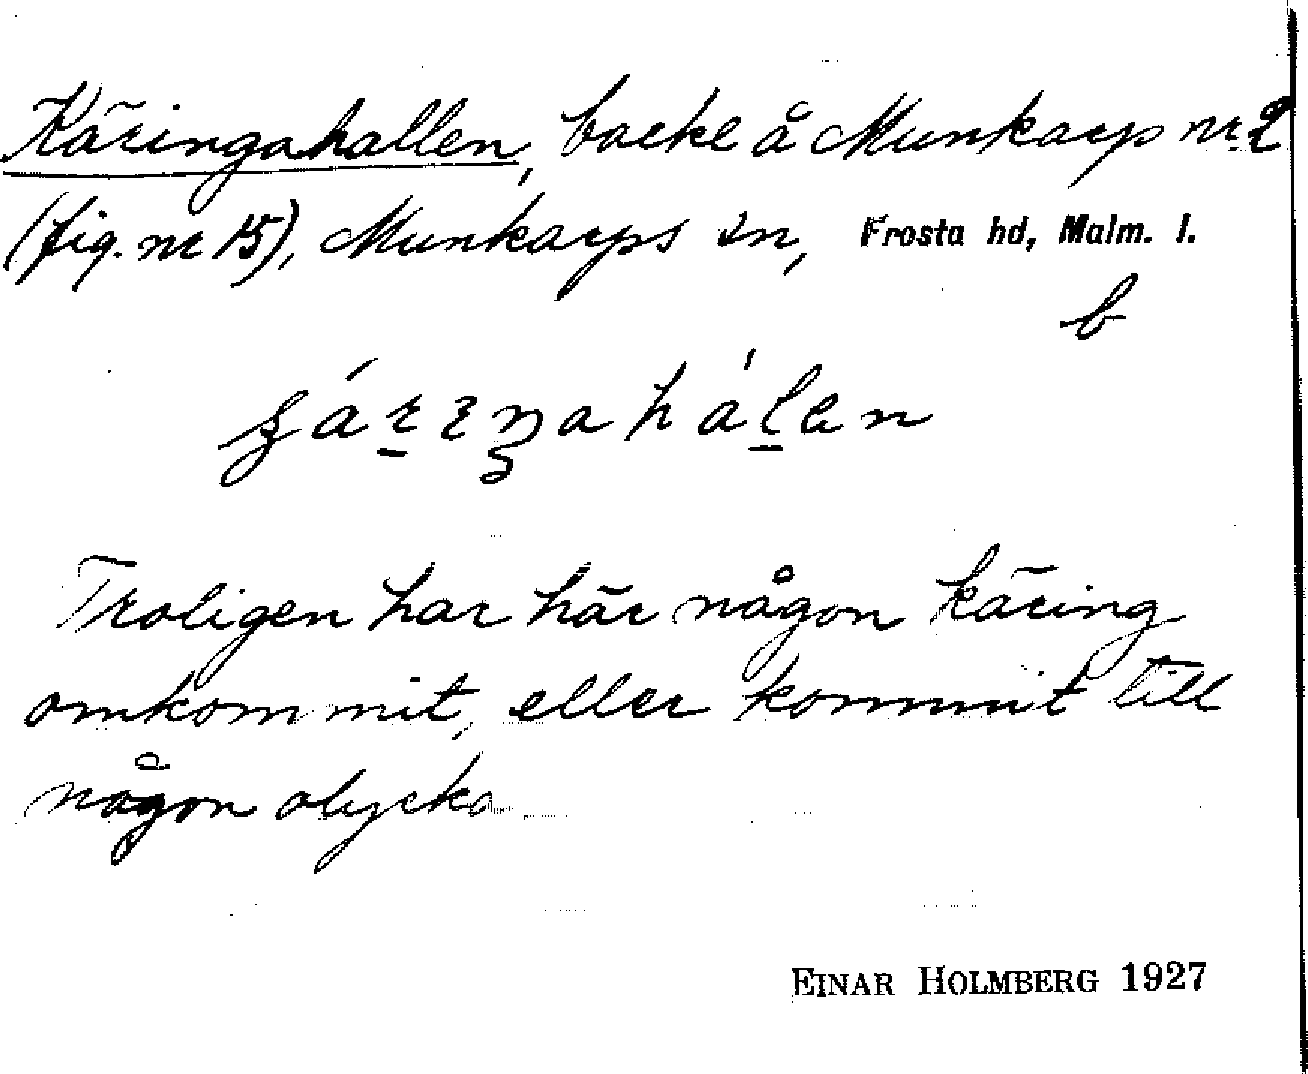 Käringahallen, backe å Munkarp nr 2
(fig. nr 15), Munkarps sn, Frosta hd, Malm. l.
b
Troligen har här någon käring
omkommit, eller kommit till
någon olycka
EINAR HOLMBERG 1927